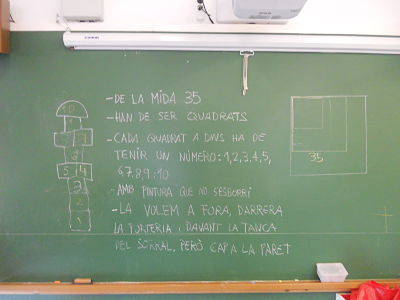 - DE LA MIDA 35
- HAN DE SER QUADRATS
- CADA QUADRAT A DINS HA DE
TENIR UN NÚMERO: 1,2,3,4,5,
6,7,8,9 i 10
- AMB PINTURA QUE NO S'ESBORRI
- LA VOLEM A FORA, DARRERA
LA PORTERIA, DAVANT LA TANCA
DEL SORRAL, PERÒ CAP A LA PARET
10
8 7
6
5 4
3
2
1
35